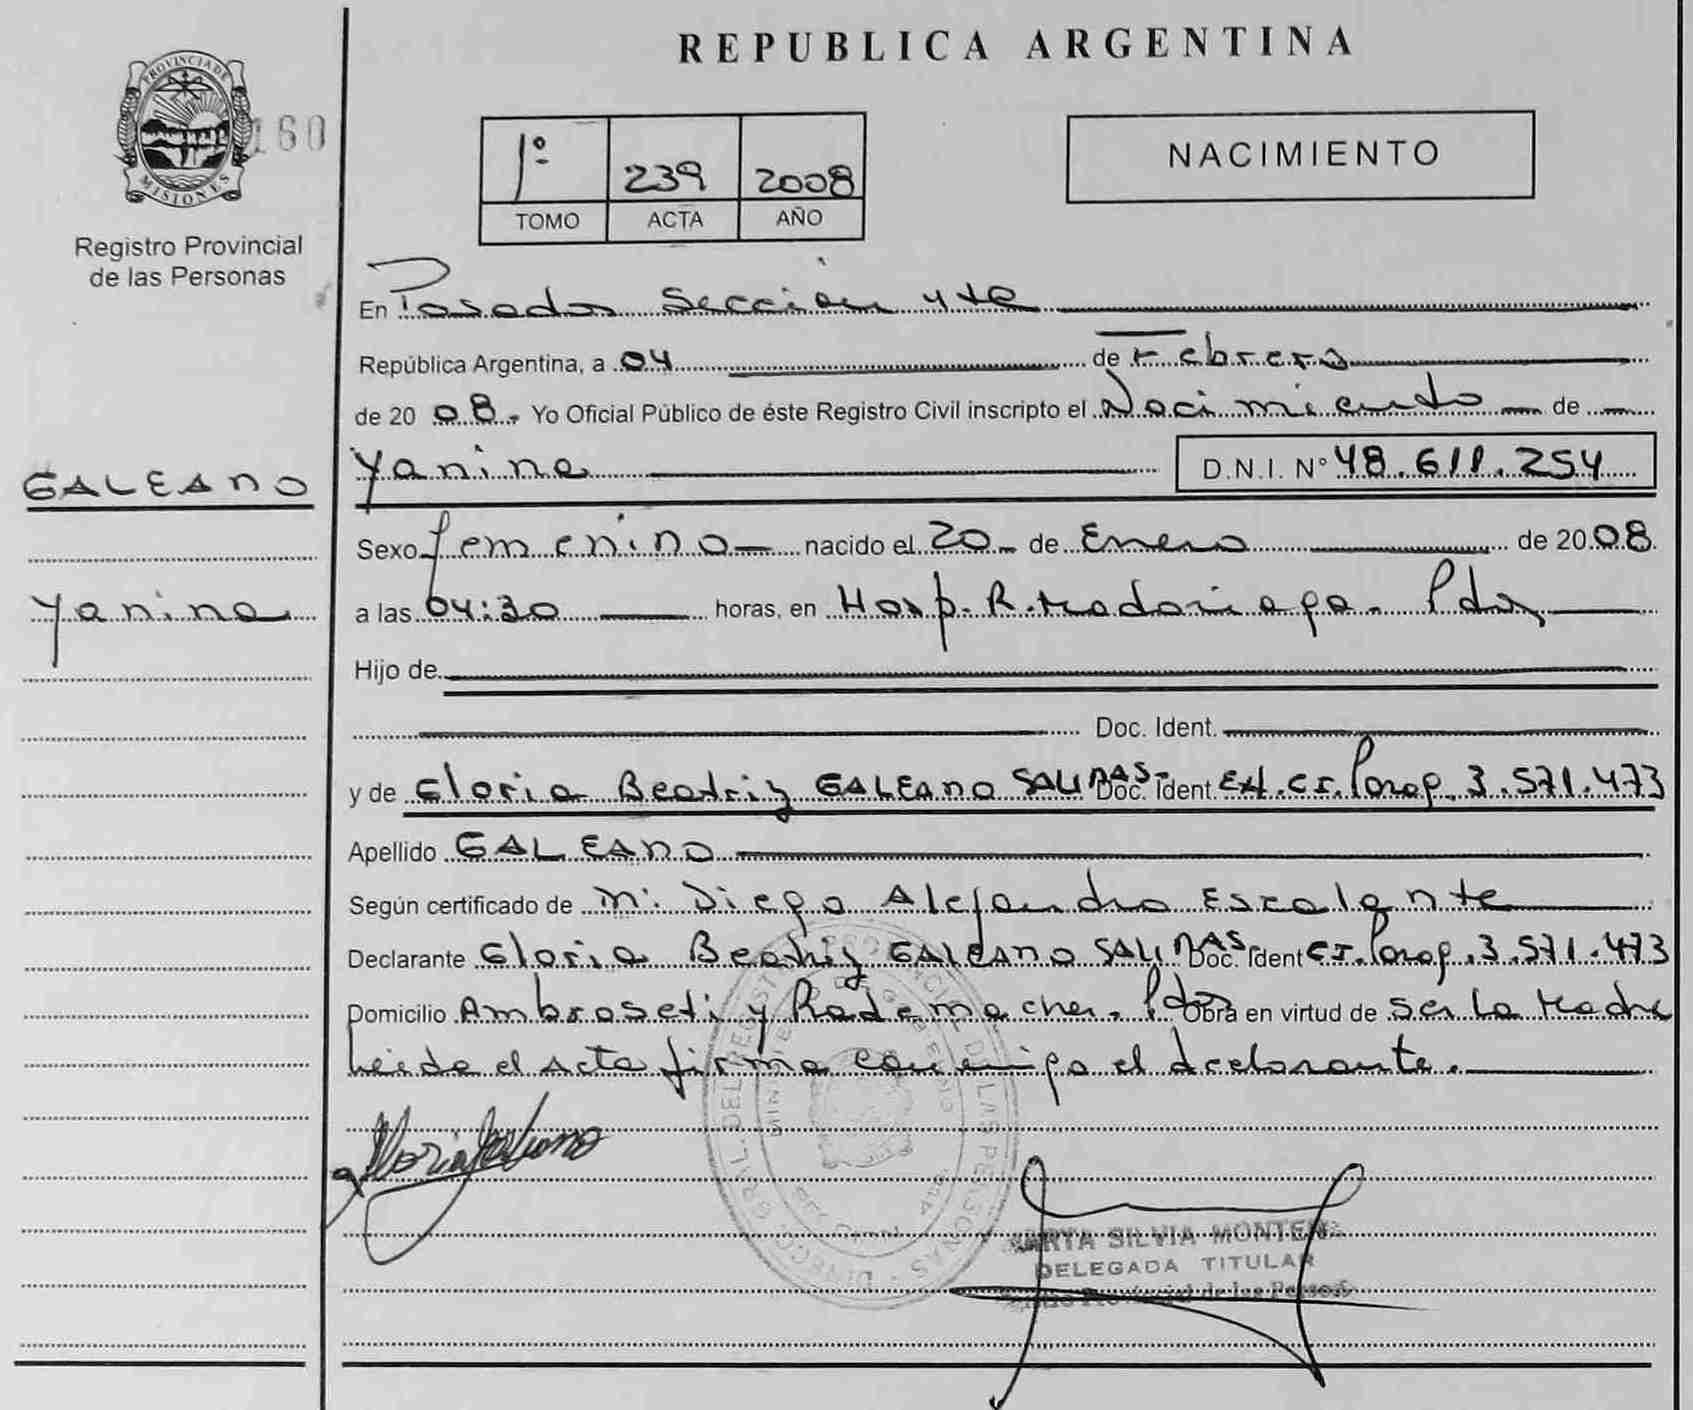 REPUBLICA ARGENTINA
PROVINCIA DE
MISIONES
160
Registro Provincial
de las Personas
1º 239 2008
TOMO ACTA AÑO
NACIMIENTO
En Posadas Sección 4ta
República Argentina, a 04 de Febrero
de 20 08. Yo Oficial Público de éste Registro Civil inscripto el Nacimiento de
Yanina D.N.I. Nº 48.611.254
GALEANO
Sexo femenino nacido el 20 de Enero de 20 08
Yanina
a las 04:30 horas, en Hosp. R. Madariaga. Pdas
Hijo de
Doc. Ident.
y de Gloria Beatriz GALEANO SALINAS Doc. Ident. Ext. CI. Parag. 3.571.473
Apellido GALEANO
Según certificado de M: Diego Alejandro Escalante
Declarante Gloria Beatriz GALEANO SALINAS Doc. Ident CI. Parag. 3.571.473
Domicilio Ambroseti y Rademacher. Pdas Obra en virtud de ser la Madre
Leida el Acta firma conmigo el declarante.
DELEGADA TITULAR